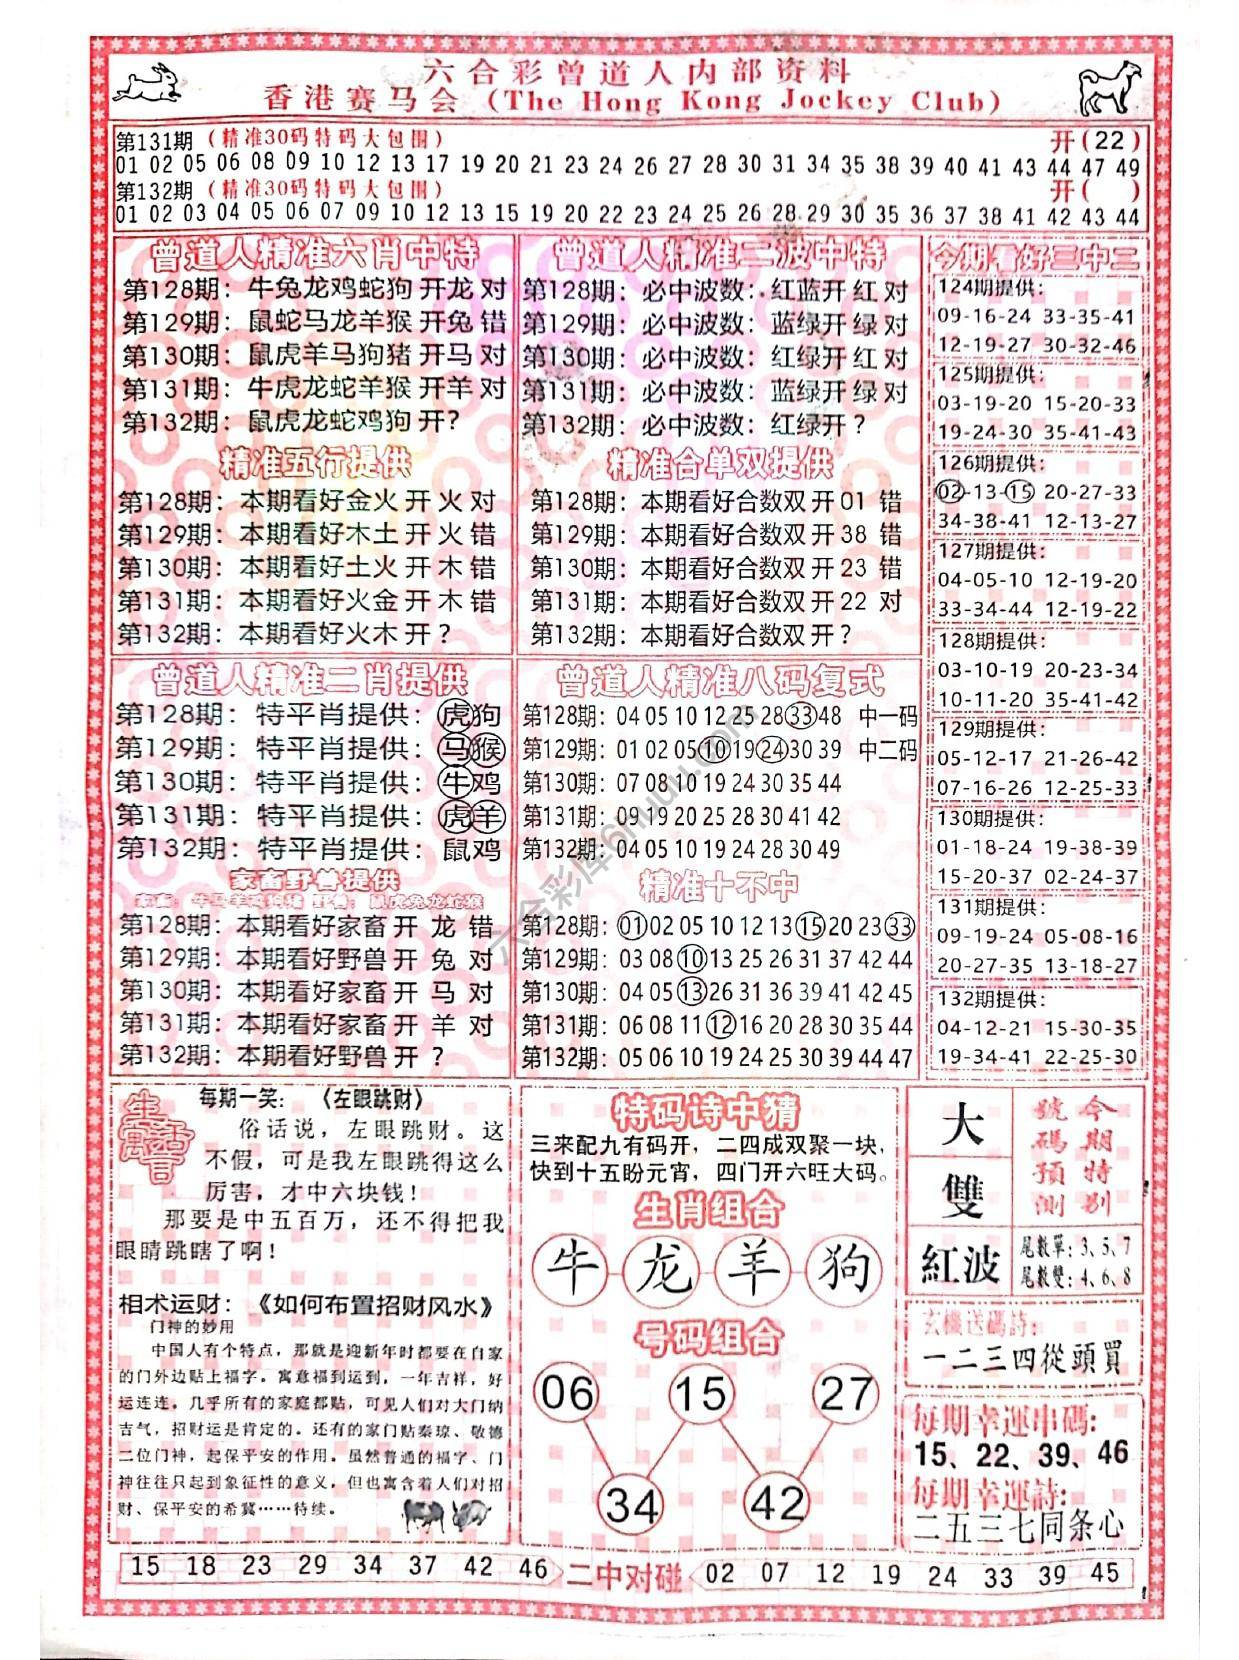 六合彩曾道人内部资料
香港赛马会 (The Hong Kong Jockey Club)
第131期 (精准30码特码大包围) 开(22)
01 02 05 06 08 09 10 12 13 17 19 20 21 23 24 26 27 28 30 31 34 35 38 39 40 41 43 44 47 49
第132期 (精准30码特码大包围) 开( )
01 02 03 04 05 06 07 09 10 12 13 15 19 20 22 23 24 25 26 28 29 30 35 36 37 38 41 42 43 44
曾道人精准六肖中特
第128期: 牛兔龙鸡蛇狗 开龙 对
第129期: 鼠蛇马龙羊猴 开兔 错
第130期: 鼠虎羊马狗猪 开马 对
第131期: 牛虎龙蛇羊猴 开羊 对
第132期: 鼠虎龙蛇鸡狗 开?
精准五行提供
第128期: 本期看好金火 开 火 对
第129期: 本期看好木土 开 火 错
第130期: 本期看好土火 开 木 错
第131期: 本期看好火金 开 木 错
第132期: 本期看好火木 开 ?
曾道人精准二波中特
第128期: 必中波数: 红蓝开 红 对
第129期: 必中波数: 蓝绿开 绿 对
第130期: 必中波数: 红绿开 红 对
第131期: 必中波数: 蓝绿开 绿 对
第132期: 必中波数: 红绿开 ?
精准合单双提供
第128期: 本期看好合数双 开 01 错
第129期: 本期看好合数双 开 38 错
第130期: 本期看好合数双 开 23 错
第131期: 本期看好合数双 开 22 对
第132期: 本期看好合数双 开 ?
今期看好三中二
124期提供:
09-16-24 33-35-41
12-19-27 30-32-46
125期提供:
03-19-20 15-20-33
19-24-30 35-41-43
126期提供:
02-13-15 20-27-33
34-38-41 12-13-27
127期提供:
04-05-10 12-19-20
33-34-44 12-19-22
128期提供:
03-10-19 20-23-34
10-11-20 35-41-42
129期提供:
05-12-17 21-26-42
07-16-26 12-25-33
130期提供:
01-18-24 19-38-39
15-20-37 02-24-37
131期提供:
09-19-24 05-08-16
20-27-35 13-18-27
132期提供:
04-12-21 15-30-35
19-34-41 22-25-30
曾道人精准二肖提供
第128期: 特平肖提供: 虎狗
第129期: 特平肖提供: 马猴
第130期: 特平肖提供: 牛鸡
第131期: 特平肖提供: 虎羊
第132期: 特平肖提供: 鼠鸡
家畜野兽提供
家畜: 牛马羊鸡狗猪 野兽: 鼠虎兔龙蛇猴
第128期: 本期看好家畜 开 龙 错
第129期: 本期看好野兽 开 兔 对
第130期: 本期看好家畜 开 马 对
第131期: 本期看好家畜 开 羊 对
第132期: 本期看好野兽 开 ?
曾道人精准八码复式
第128期: 04 05 10 12 23 28 33 48 中一码
第129期: 01 02 05 10 19 24 30 39 中二码
第130期: 07 08 10 19 24 30 35 44
第131期: 09 19 20 25 28 30 41 42
第132期: 04 05 10 19 24 28 30 49
精准十不中
第128期: 01 02 05 10 12 13 15 20 23 33
第129期: 03 08 10 13 25 26 31 37 42 44
第130期: 04 05 13 26 31 36 39 41 42 45
第131期: 06 08 11 12 16 20 28 30 35 44
第132期: 05 06 10 19 24 25 30 39 44 47
六合彩库6huuu.com
生活寓言
每期一笑: 《左眼跳财》
俗话说，左眼跳财。这
不假，可是我左眼跳得这么
厉害，才中六块钱！
那要是中五百万，还不得把我
眼睛跳瞎了啊！
相术运财: 《如何布置招财风水》
门神的妙用
中国人有个特点，那就是迎新年时都要在自家
的门外边贴上福字。寓意福到运到，一年吉祥，好
运连连。几乎所有的家庭都贴，可见人们对大门纳
吉气，招财运是肯定的。还有的家门贴秦琼、敬德
二位门神，起保平安的作用。虽然普通的福字、门
神往往只起到象征性的意义，但也寓含着人们对招
财、保平安的希冀……待续。
特码诗中猜
三来配九有码开，二四成双聚一块，
快到十五盼元宵，四门开六旺大码。
生肖组合
牛 龙 羊 狗
号码组合
06 15 27
34 42
今期特别
號碼預測
大
雙
紅波
尾數單: 3、5、7
尾數雙: 4、6、8
玄機送碼詩:
一二三四從頭買
每期幸運串碼:
15、22、39、46
每期幸運詩:
二五三七同条心
15 18 23 29 34 37 42 46 二中对碰 02 07 12 19 24 33 39 45